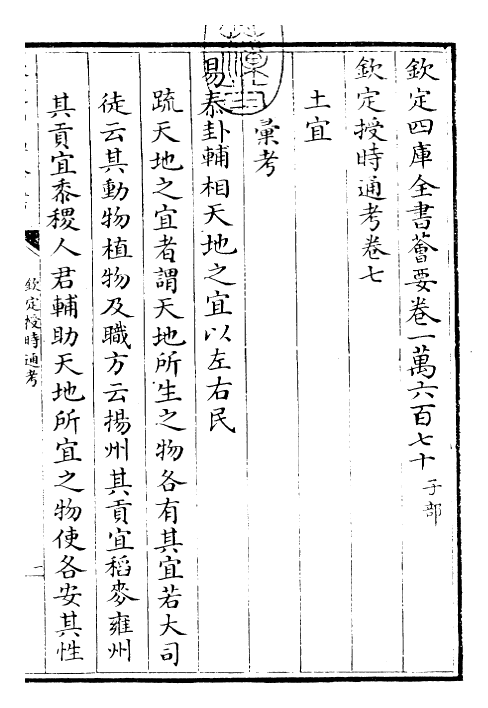 欽定四庫全書薈要卷一萬六百七十 子部
欽定授時通考卷七
土宜
彙考
易泰卦輔相天地之宜以左右民
疏天地之宜者謂天地所生之物各有其宜若大司
徒云其動物植物及職方云揚州其貢宜稻麥雍州
其貢宜黍稷人君輔助天地所宜之物使各安其性
欽定授時通考